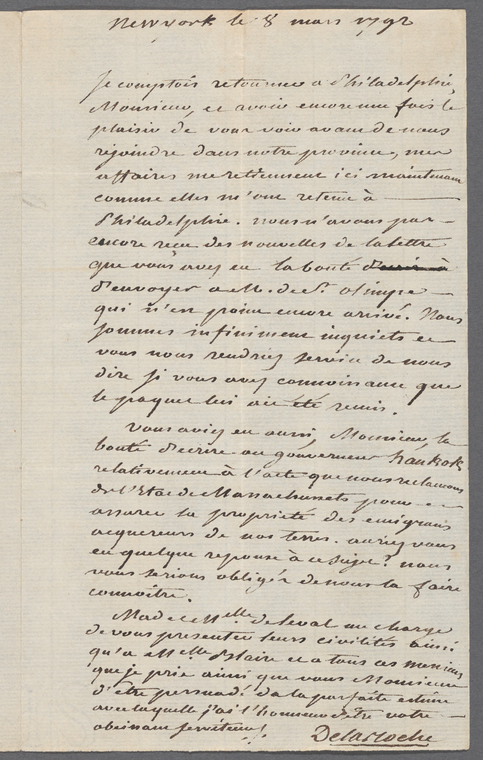 Newyork le 8 mars 1792
Je comptois retourner a Philadelphie,
Monsieur, et avoir encore une fois le
plaisir de vous voir avant de nous
rejoindre dans notre province, mes
affaires me retiennent ici maintenant
comme elles m'ont retenu à
Philadelphie. nous n'avons pas
encore recu des nouvelles de la lettre
que vous avez eu la bonté
d'envoyer a M. de St. olimpe
qui n'est point encore arrivé. Nous
sommes infiniment inquiets et
vous nous rendriez service de nous
dire si vous avez connoissance que
le paquet lui ait été remis.
Vous aviez eu aussi, Monsieur, la
bonté d'ecrire au gouverneur hankok
relativement à l'acte que nous reclamons
de l'Etat de Massachussets pour
assurer la propriété des emigrans
acquereurs de nos terres. auriez vous
eu quelque reponse à ce sujet? nous
vous serions obligés de nous la faire
connoitre.
Made et Melle de leval me charge
de vous presenter leurs civilités ainsi
qu'a Melle et a tous ces messieurs
que je prie ainsi que vous Monsieur
d'être persuadé de la parfaite estime
avec laquelle j'ai l'honneur d'être votre
obeissant serviteur
Delaroche